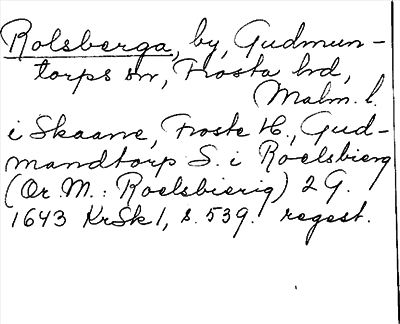 Rolsberga, by, Gudmun-
torps sn, Frosta hd,
Malm. l.
i Skaane, Froste H., Gud-
mandtorp S. i Roelsbierig
(Or. M.: Roelsbierig) 2 G.
1643 KrSk 1, s. 539. regest.